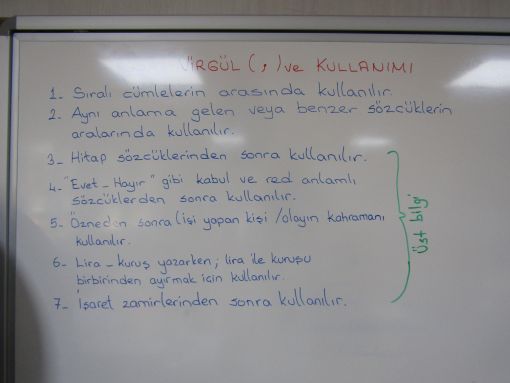 VİRGÜL ( , ) ve KULLANIMI
1- Sıralı cümlelerin arasında kullanılır.
2- Aynı anlama gelen veya benzer sözcüklerin
aralarında kullanılır.
3- Hitap sözcüklerinden sonra kullanılır.
4- "Evet - Hayır" gibi kabul ve red anlamlı
sözcüklerden sonra kullanılır.
5- Özneden sonra (işi yapan kişi /olayın kahramanı
kullanılır.
6- Lira - kuruş yazarken; lira ile kuruşu
birbirinden ayırmak için kullanılır.
7- İşaret zamirlerinden sonra kullanılır.
Üst bilgi